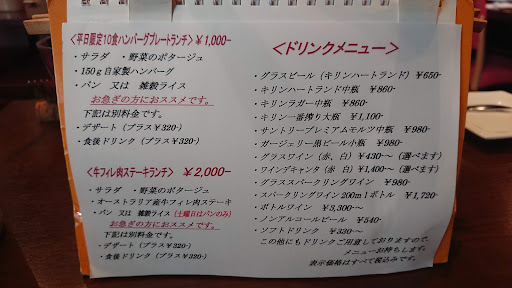 ＜平日限定10食ハンバーグプレートランチ＞￥1,000-
・サラダ ・野菜のポタージュ
・150g自家製ハンバーグ
・パン 又は 雑穀ライス
お急ぎの方におススメです。
下記は別料金です。
・デザート（プラス￥320-）
・食後ドリンク（プラス￥320-）
＜牛フィレ肉ステーキランチ＞ ￥2,000-
・サラダ ・野菜のポタージュ
・オーストラリア産牛フィレ肉ステーキ
・パン 又は 雑穀ライス（土曜日はパンのみ）
お急ぎの方におススメです。
下記は別料金です。
・デザート（プラス￥320-）
・食後ドリンク（プラス￥320-）
＜ドリンクメニュー＞
・グラスビール（キリンハートランド）￥650-
・キリンハートランド中瓶 ￥860-
・キリンラガー中瓶 ￥860-
・キリン一番搾り大瓶 ￥1,100-
・サントリープレミアムモルツ中瓶 ￥980-
・ガージェリー黒ビール小瓶 ￥980-
・グラスワイン（赤、白）￥430～（選べます）
・ワインデキャンタ（赤、白）￥1,400～（選べます）
・グラススパークリングワイン ￥980-
・スパークリングワイン200mlボトル ￥1,720-
・ボトルワイン ￥3,300～
・ノンアルコールビール ￥540-
・ソフトドリンク ￥330～
この他にもドリンクご用意しておりますので、
メニューお持ちします。
表示価格はすべて税込みです。